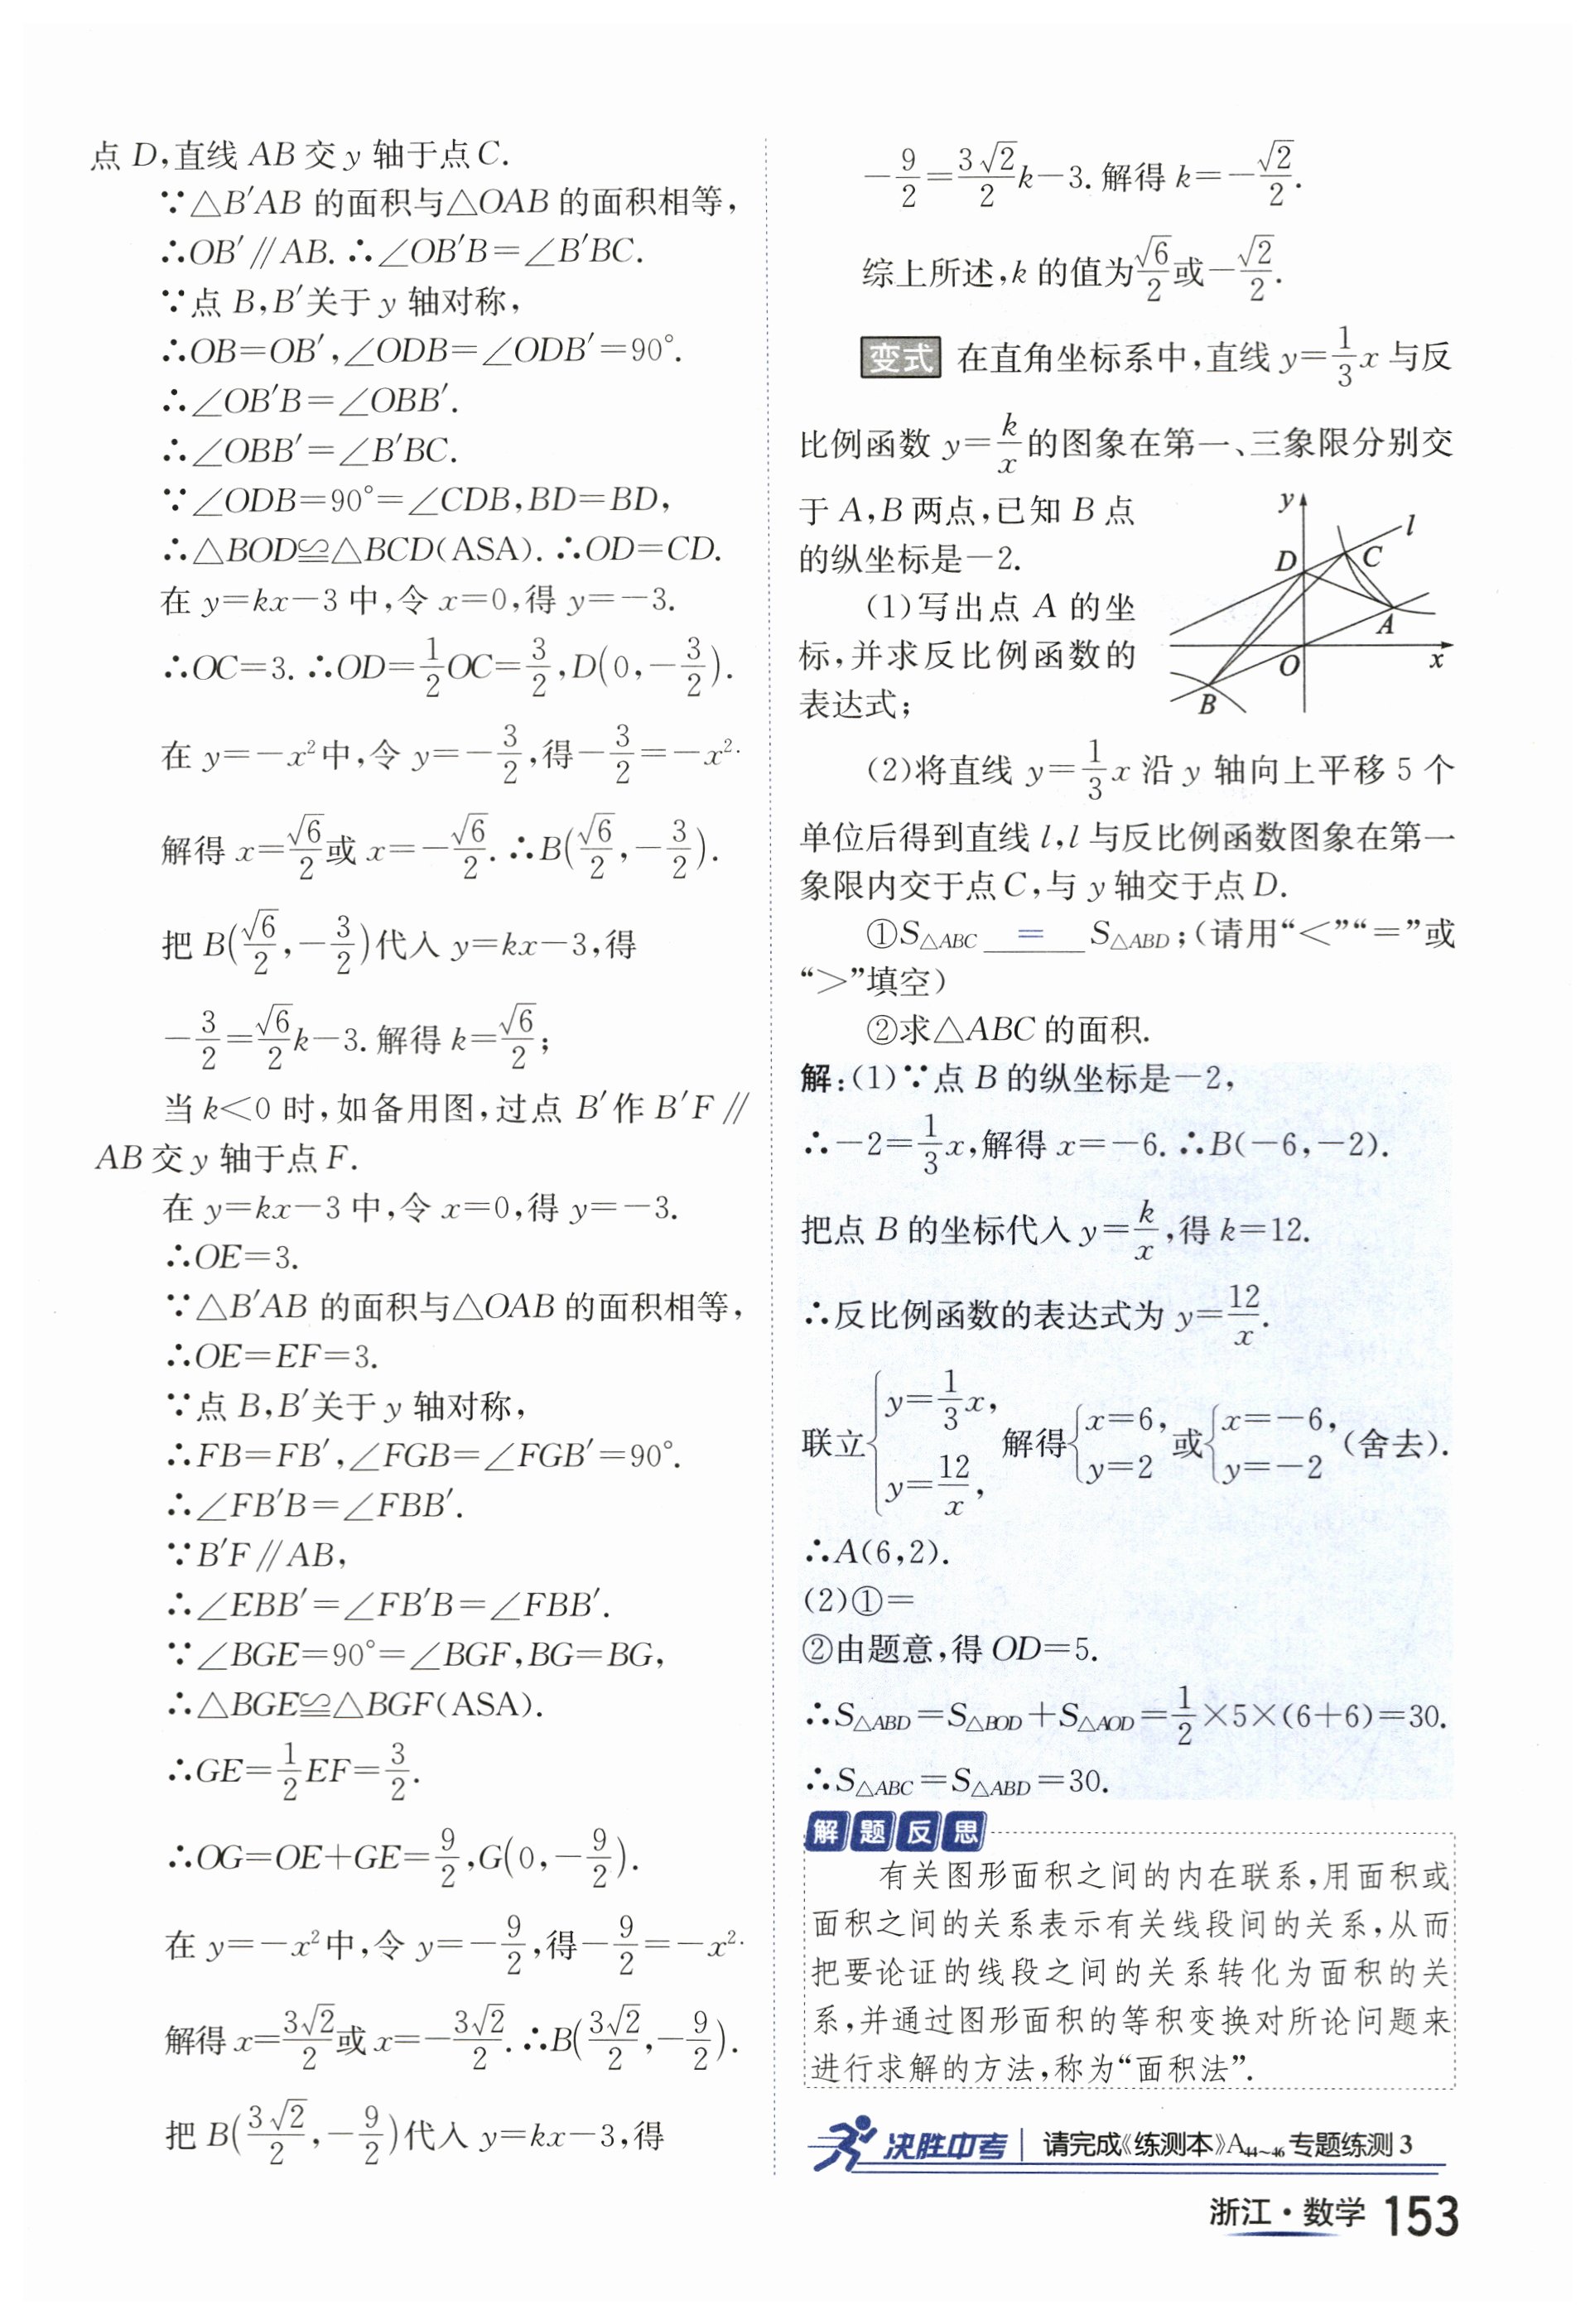 点 D,直线 AB 交 y 轴于点 C.
∵△B′AB 的面积与△OAB 的面积相等,
∴OB′∥AB. ∴∠OB′B=∠B′BC.
∵点 B,B′关于 y 轴对称,
∴OB=OB′,∠ODB=∠ODB′=90°.
∴∠OB′B=∠OBB′.
∴∠OBB′=∠B′BC.
∵∠ODB=90°=∠CDB,BD=BD,
∴△BOD≌△BCD(ASA). ∴OD=CD.
在 y=kx−3 中,令 x=0,得 y=−3.
∴OC=3. ∴OD=1/2 OC=3/2,D(0,−3/2).
在 y=−x²中,令 y=−3/2,得−3/2=−x².
解得 x=√6/2或 x=−√6/2. ∴B(√6/2,−3/2).
把 B(√6/2,−3/2)代入 y=kx−3,得
−3/2=√6/2 k−3. 解得 k=√6/2;
当 k<0 时,如备用图,过点 B′作 B′F∥
AB 交 y 轴于点 F.
在 y=kx−3 中,令 x=0,得 y=−3.
∴OE=3.
∵△B′AB 的面积与△OAB 的面积相等,
∴OE=EF=3.
∵点 B,B′关于 y 轴对称,
∴FB=FB′,∠FGB=∠FGB′=90°.
∴∠FB′B=∠FBB′.
∵B′F∥AB,
∴∠EBB′=∠FB′B=∠FBB′.
∵∠BGE=90°=∠BGF,BG=BG,
∴△BGE≌△BGF(ASA).
∴GE=1/2 EF=3/2.
∴OG=OE+GE=9/2,G(0,−9/2).
在 y=−x²中,令 y=−9/2,得−9/2=−x².
解得 x=3√2/2或 x=−3√2/2. ∴B(3√2/2,−9/2).
把 B(3√2/2,−9/2)代入 y=kx−3,得
−9/2=3√2/2 k−3. 解得 k=−√2/2.
综上所述,k 的值为√6/2或−√2/2.
变式 在直角坐标系中,直线 y=1/3 x 与反
比例函数 y=k/x的图象在第一、三象限分别交
于 A,B 两点,已知 B 点
的纵坐标是−2.
(1)写出点 A 的坐
标,并求反比例函数的
表达式;
y
l
D
C
A
O
x
B
(2)将直线 y=1/3 x 沿 y 轴向上平移 5 个
单位后得到直线 l,l 与反比例函数图象在第一
象限内交于点 C,与 y 轴交于点 D.
①S△ABC = S△ABD;(请用“<”“=”或
“>”填空)
②求△ABC 的面积.
解:(1)∵点 B 的纵坐标是−2,
∴−2=1/3 x,解得 x=−6. ∴B(−6,−2).
把点 B 的坐标代入 y=k/x,得 k=12.
∴反比例函数的表达式为 y=12/x.
联立{y=1/3 x, y=12/x, 解得{x=6, y=2 或{x=−6, y=−2 (舍去).
∴A(6,2).
(2)①=
②由题意,得 OD=5.
∴S△ABD=S△BOD+S△AOD=1/2×5×(6+6)=30.
∴S△ABC=S△ABD=30.
解题反思
有关图形面积之间的内在联系,用面积或
面积之间的关系表示有关线段间的关系,从而
把要论证的线段之间的关系转化为面积的关
系,并通过图形面积的等积变换对所论问题来
进行求解的方法,称为“面积法”.
决胜中考 请完成《练测本》A44~46 专题练测 3
浙江·数学 153